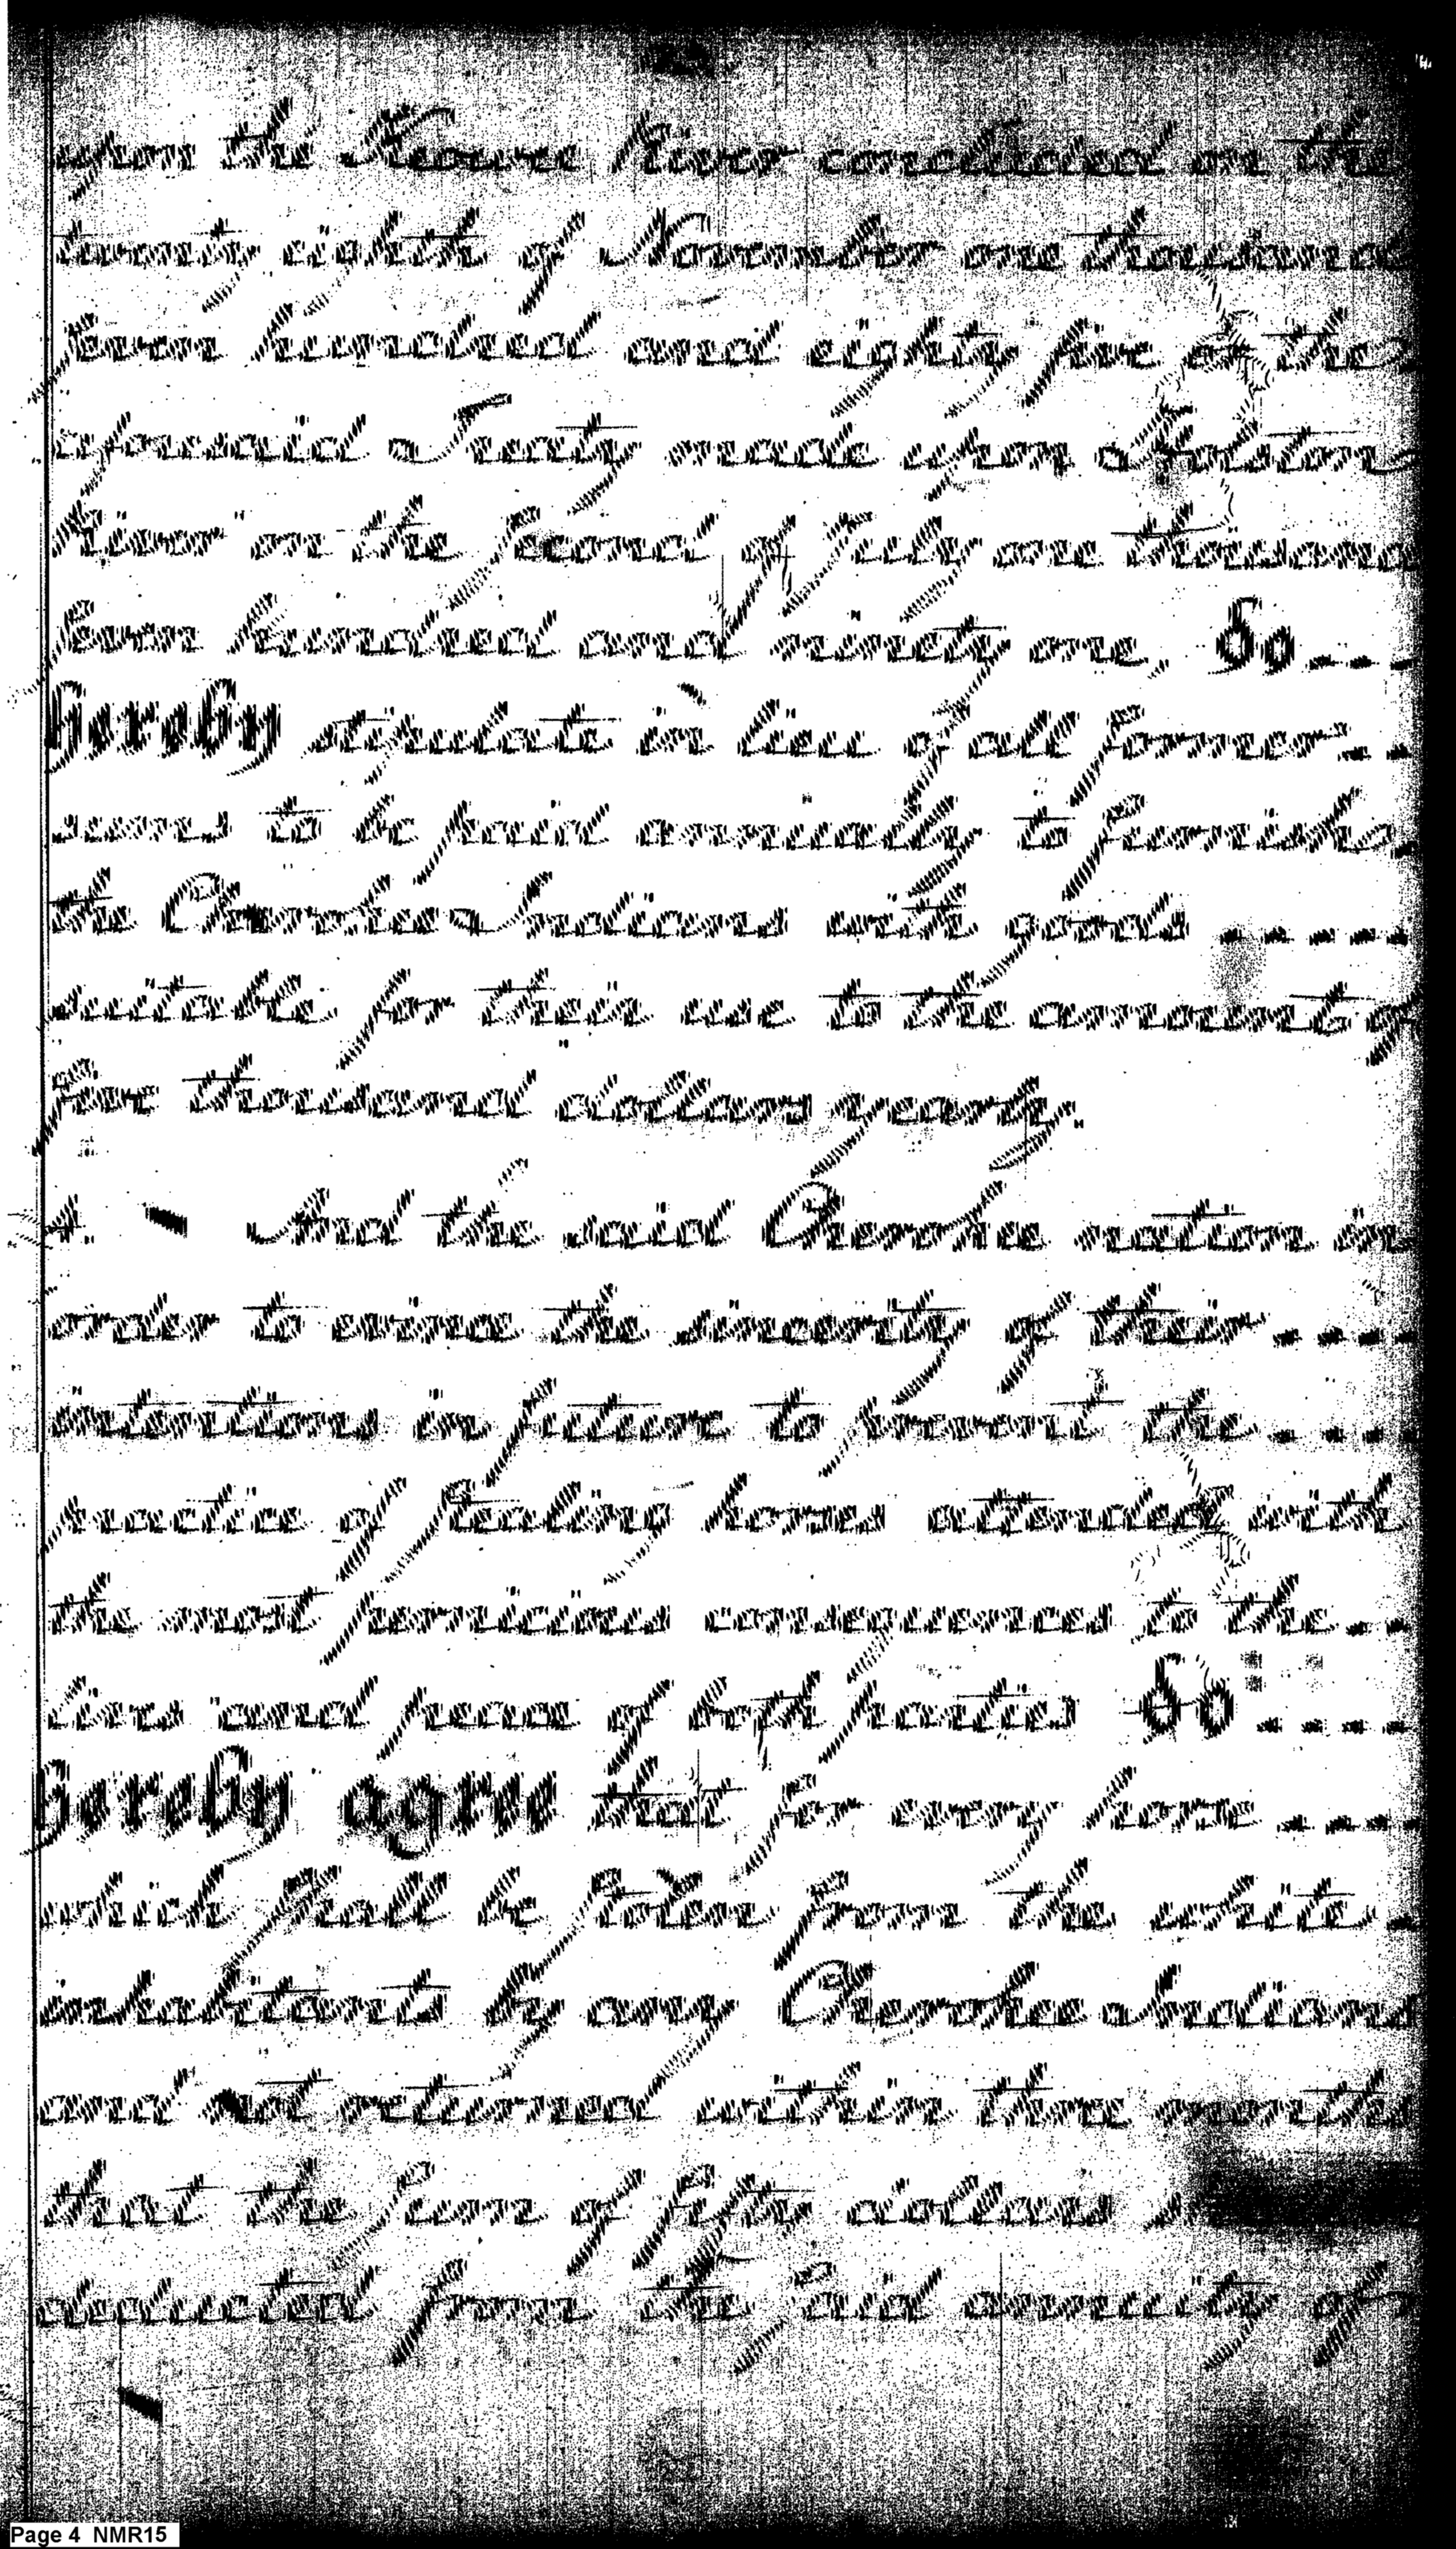 upon the Keowee River concluded on the
twenty eighth of November one thousand
seven hundred and eighty five or the
aforesaid Treaty made upon Holston
River on the second of July one thousand
seven hundred and ninety one, Do
hereby stipulate in lieu of all former
sums to be paid annually to furnish
the Cherokee Indians with goods
suitable for their use to the amount of
five thousand dollars yearly.
4. And the said Cherokee nation in
order to evince the sincerity of their
intentions in future to prevent the
practice of stealing horses attended with
the most pernicious consequences to the
lives and peace of both parties Do
hereby agree that for every horse
which shall be stolen from the white
inhabitants by any Cherokee Indians
and not returned within three months
that the sum of fifty dollars
deducted from the said annuity of
Page 4 NMR15